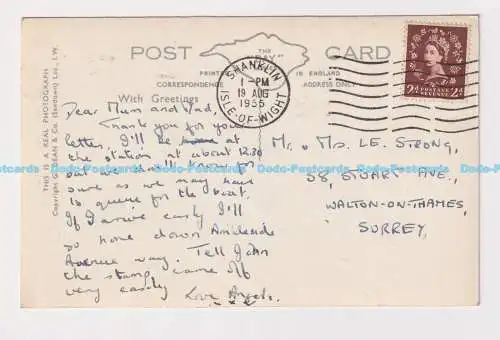 POST CARD
THE "DEAN" SERIES
PRINTED IN ENGLAND
CORRESPONDENCE ADDRESS ONLY
With Greetings
THIS IS A REAL PHOTOGRAPH
Copyright of W. J. DEAN & Co. (Sandown) Ltd., I.W.
SHANKLIN
1 - PM
19 AUG
1955
ISLE-OF-WIGHT
2D POSTAGE REVENUE 2D
Dear Mum and Dad,
Thank you for your
letter. I'll be at
the station at about 12.30
but we shan't know for
sure as we may have
to queue for the boat.
If I arrive early I'll
go home down
Avenue way. Tell John
the stamp came off
very easily Love Angela
x x x
Mr. & Mrs. LE. STRONG,
38, STUART AVE.,
WALTON-ON-THAMES,
SURREY.
Dado-Postcards